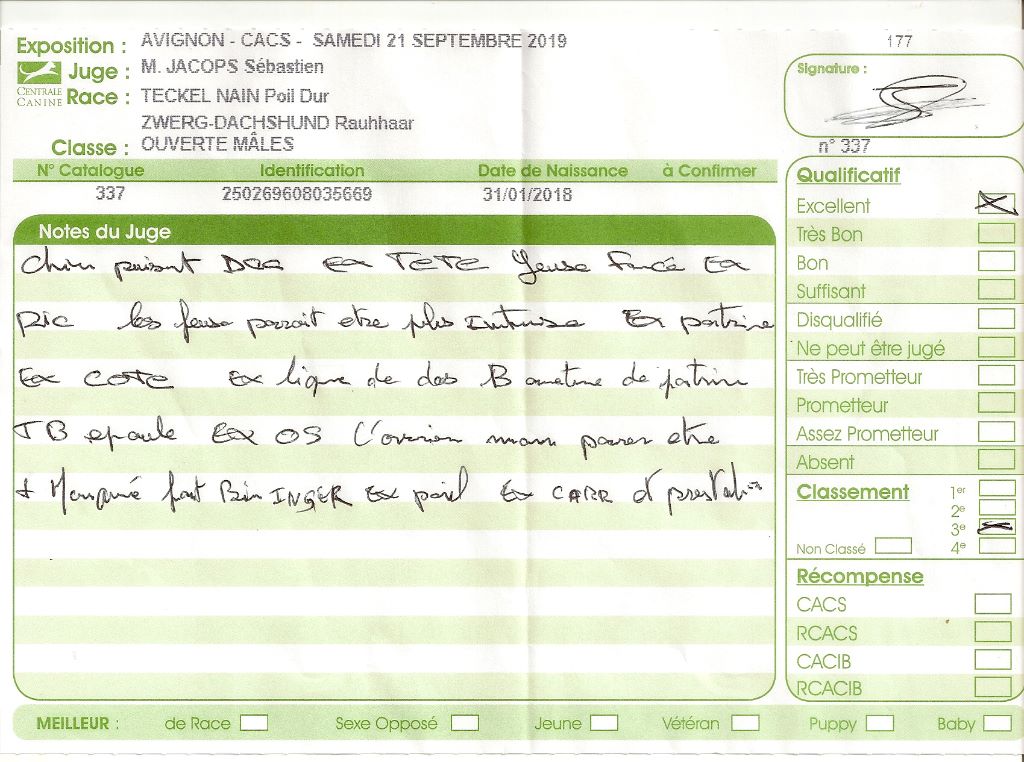 Exposition : AVIGNON - CACS - SAMEDI 21 SEPTEMBRE 2019
177
CENTRALE CANINE
Juge : M. JACOPS Sébastien
Race : TECKEL NAIN Poil Dur
ZWERG-DACHSHUND Rauhhaar
Classe : OUVERTE MÂLES
Signature :
n° 337
N° Catalogue Identification Date de Naissance à Confirmer
337 250269608035669 31/01/2018
Notes du Juge
Chien puisant Ex TETE Yeuse Foncé Ex
les parait etre plus Ex poitrine
Ex COTE Ex ligne de dos B de poitrine
TB epaule Ex OS etre
+ fort Bien Ex poil Ex CARR et
Qualificatif
Excellent
Très Bon
Bon
Suffisant
Disqualifié
Ne peut être jugé
Très Prometteur
Prometteur
Assez Prometteur
Absent
Classement
1er
2e
3e
Non Classé
4e
Récompense
CACS
RCACS
CACIB
RCACIB
MEILLEUR : de Race Sexe Opposé Jeune Vétéran Puppy Baby